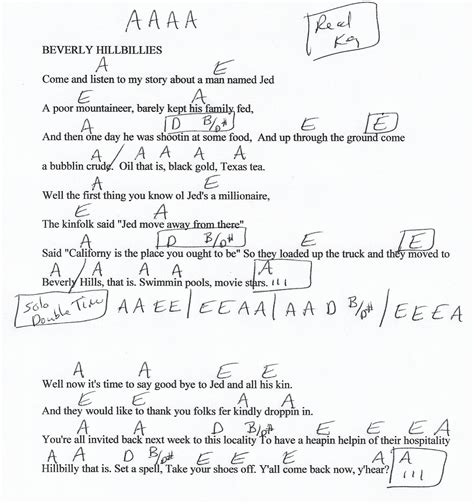 A A A A
Real
Key
BEVERLY HILLBILLIES
A E
Come and listen to my story about a man named Jed
E A
A poor mountaineer, barely kept his family fed,
A D B/D# E E
And then one day he was shootin at some food, And up through the ground come
A / A A A A
a bubblin crude. Oil that is, black gold, Texas tea.
A E
Well the first thing you know ol Jed's a millionaire,
E A
The kinfolk said "Jed move away from there"
A D B/D# E E
Said "Californy is the place you ought to be" So they loaded up the truck and they moved to
A / A A A A
Beverly Hills, that is. Swimmin pools, movie stars. 111
Solo
Double Time A A E E / E E A A / A A D B/D# / E E E A
A A E E
Well now it's time to say good bye to Jed and all his kin.
E E A A
And they would like to thank you folks fer kindly droppin in.
A A D B/D# E E E E
You're all invited back next week to this locality To have a heapin helpin of their hospitality
A A D B/D# E E E A A
Hillbilly that is. Set a spell, Take your shoes off. Y'all come back now, y'hear? 111